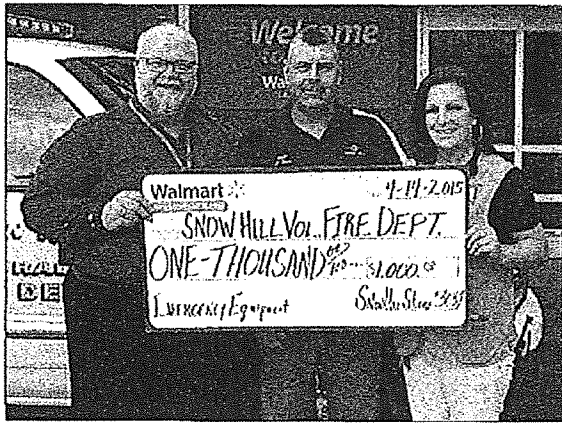 Welcome
Walmart
4-14-2015
SNOW HILL VOL. FIRE DEPT.
ONE-THOUSAND $1,000.00
Emergency Equipment
DE